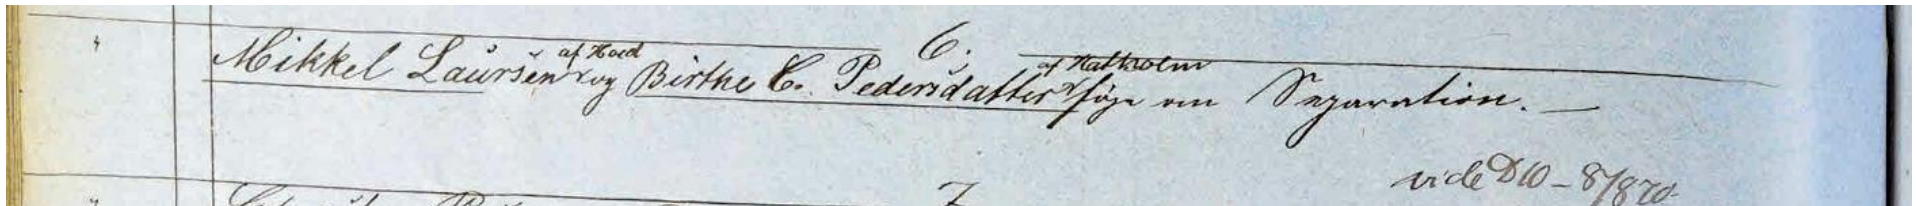 6.
Mikkel Laursen af Hoed og Birthe C. Pedersdatter af Katholm søge om Separation. —
vide D 10 - 8/870
7